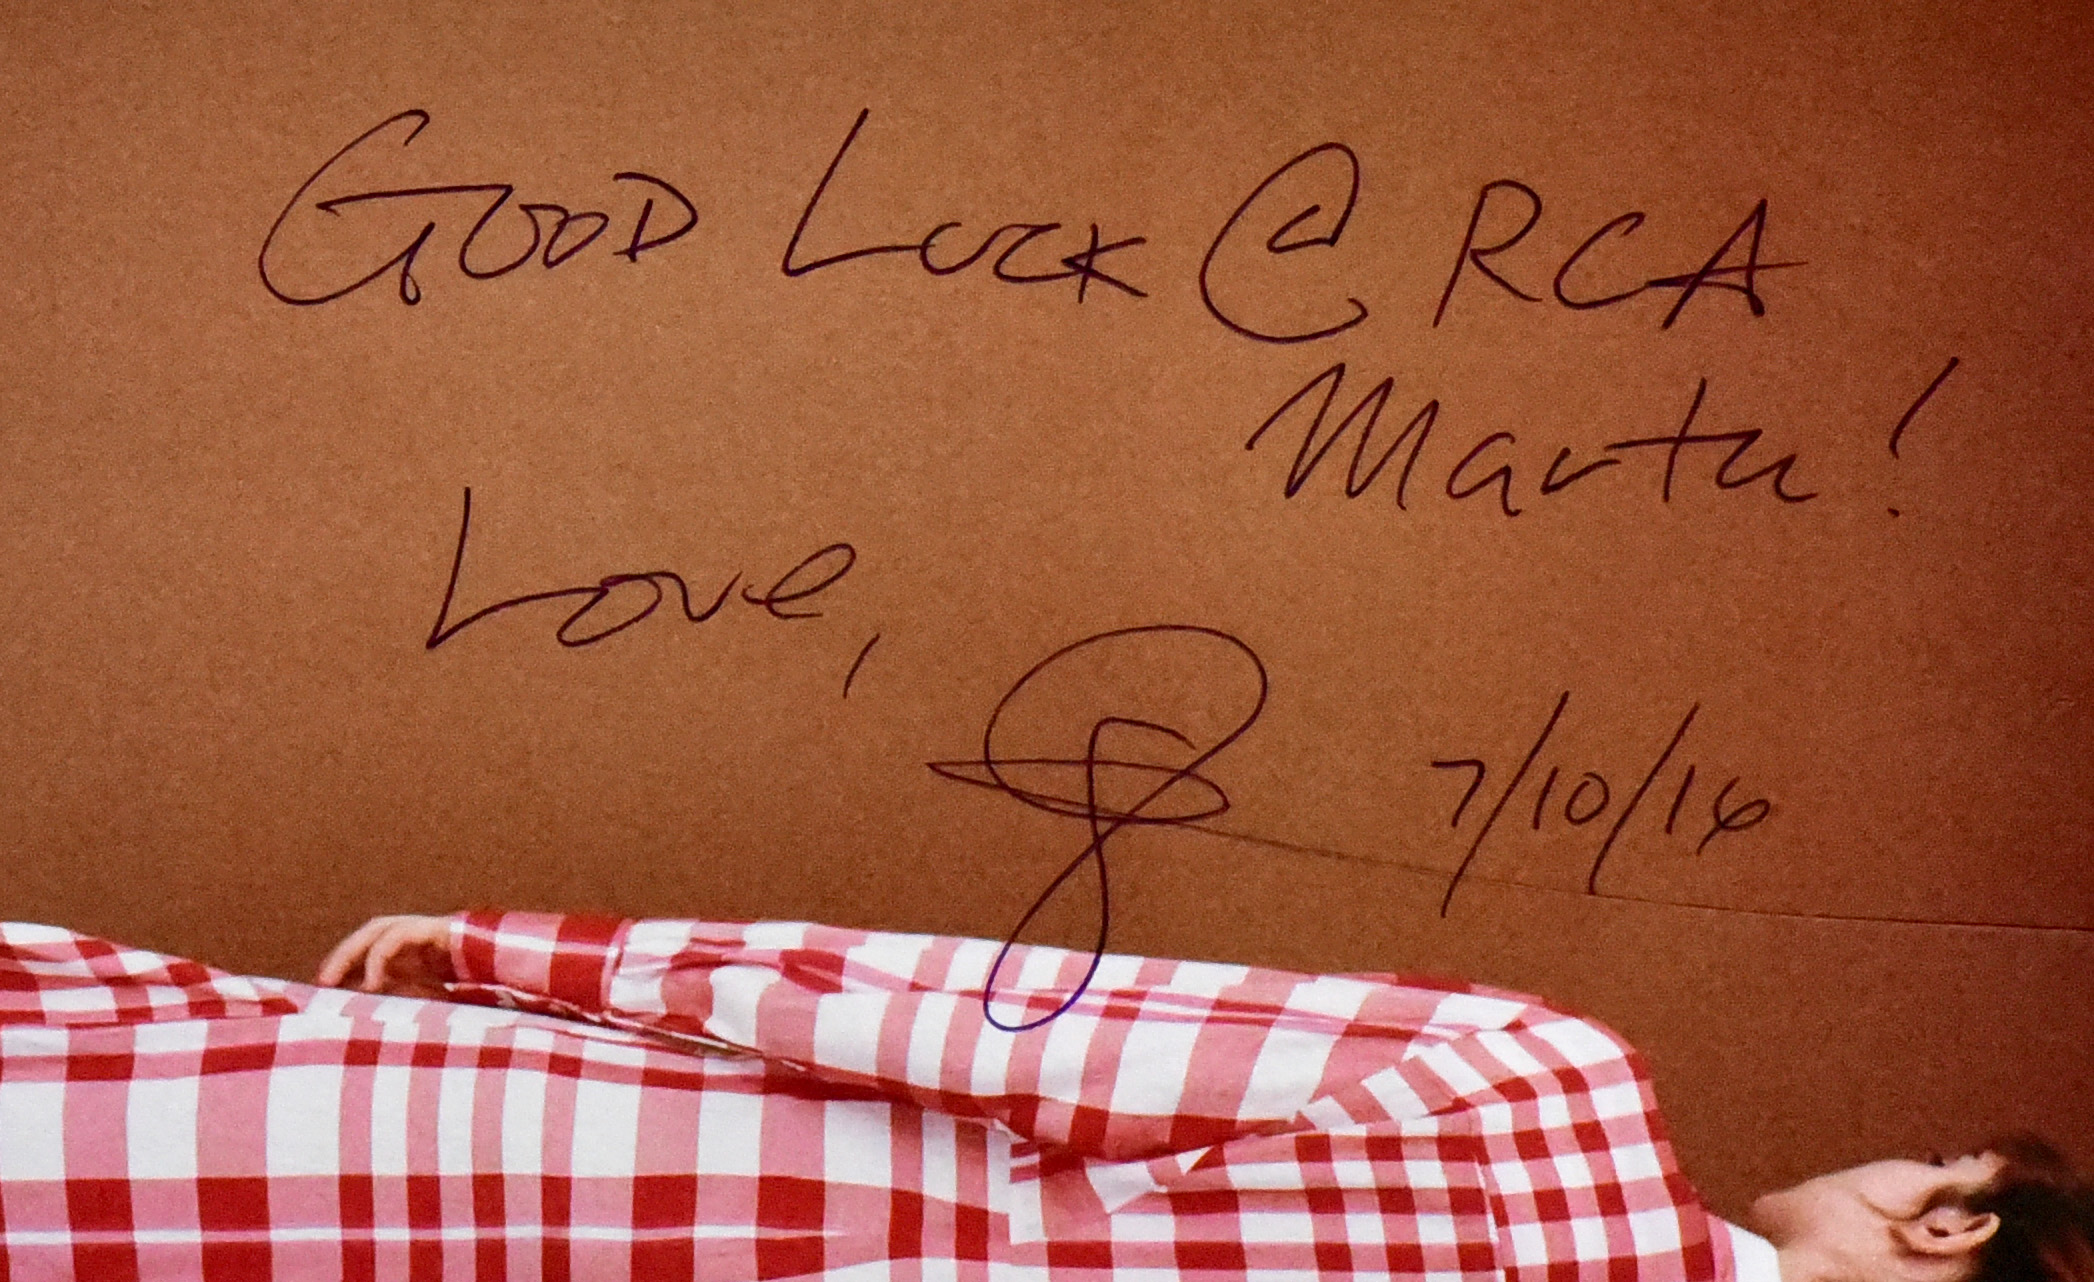 GOOD Luck @ RCA
Marta!
Love,
7/10/16